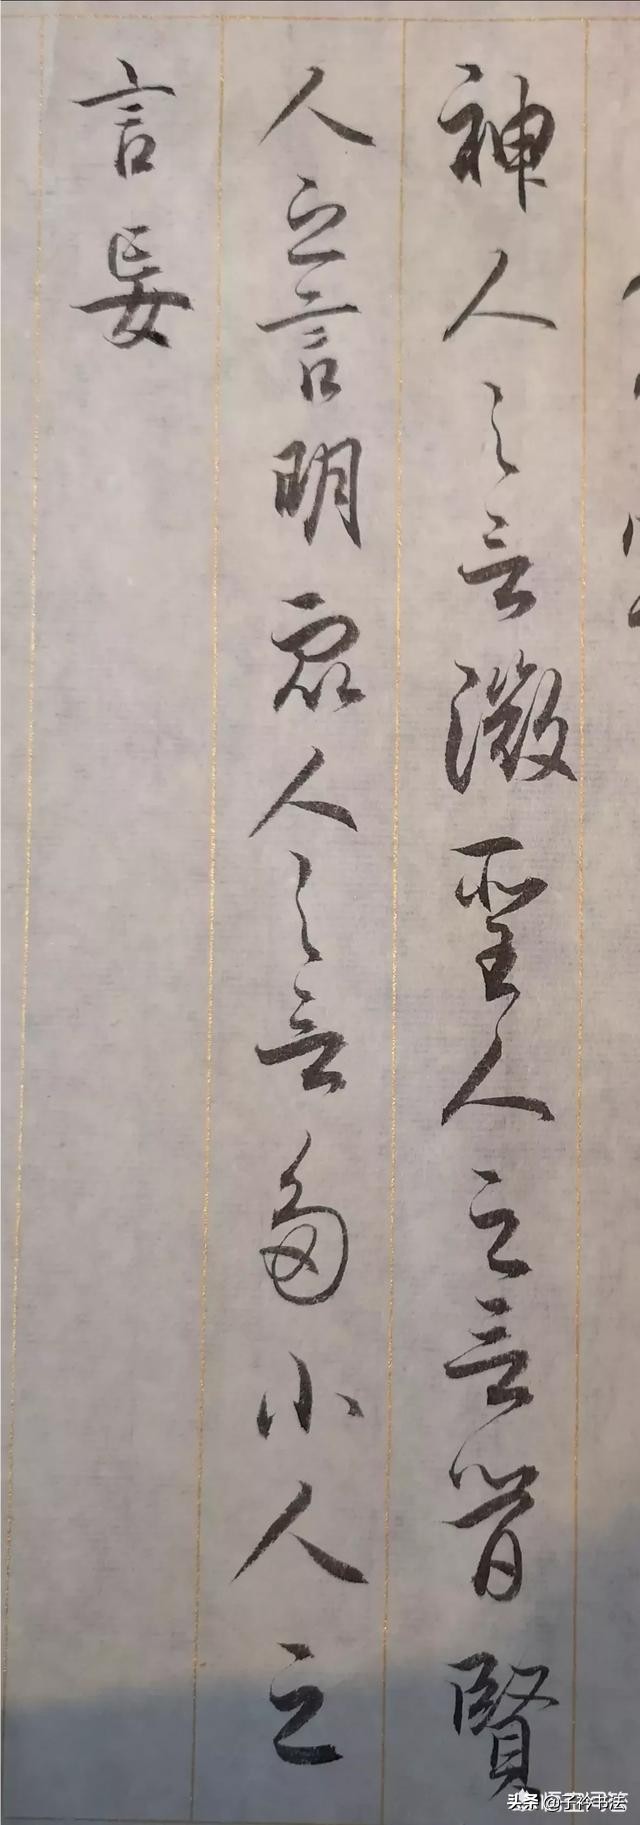 神人之言微聖人之言簡賢
人之言明眾人之言多小人之
言妄
头条 @子衿书法